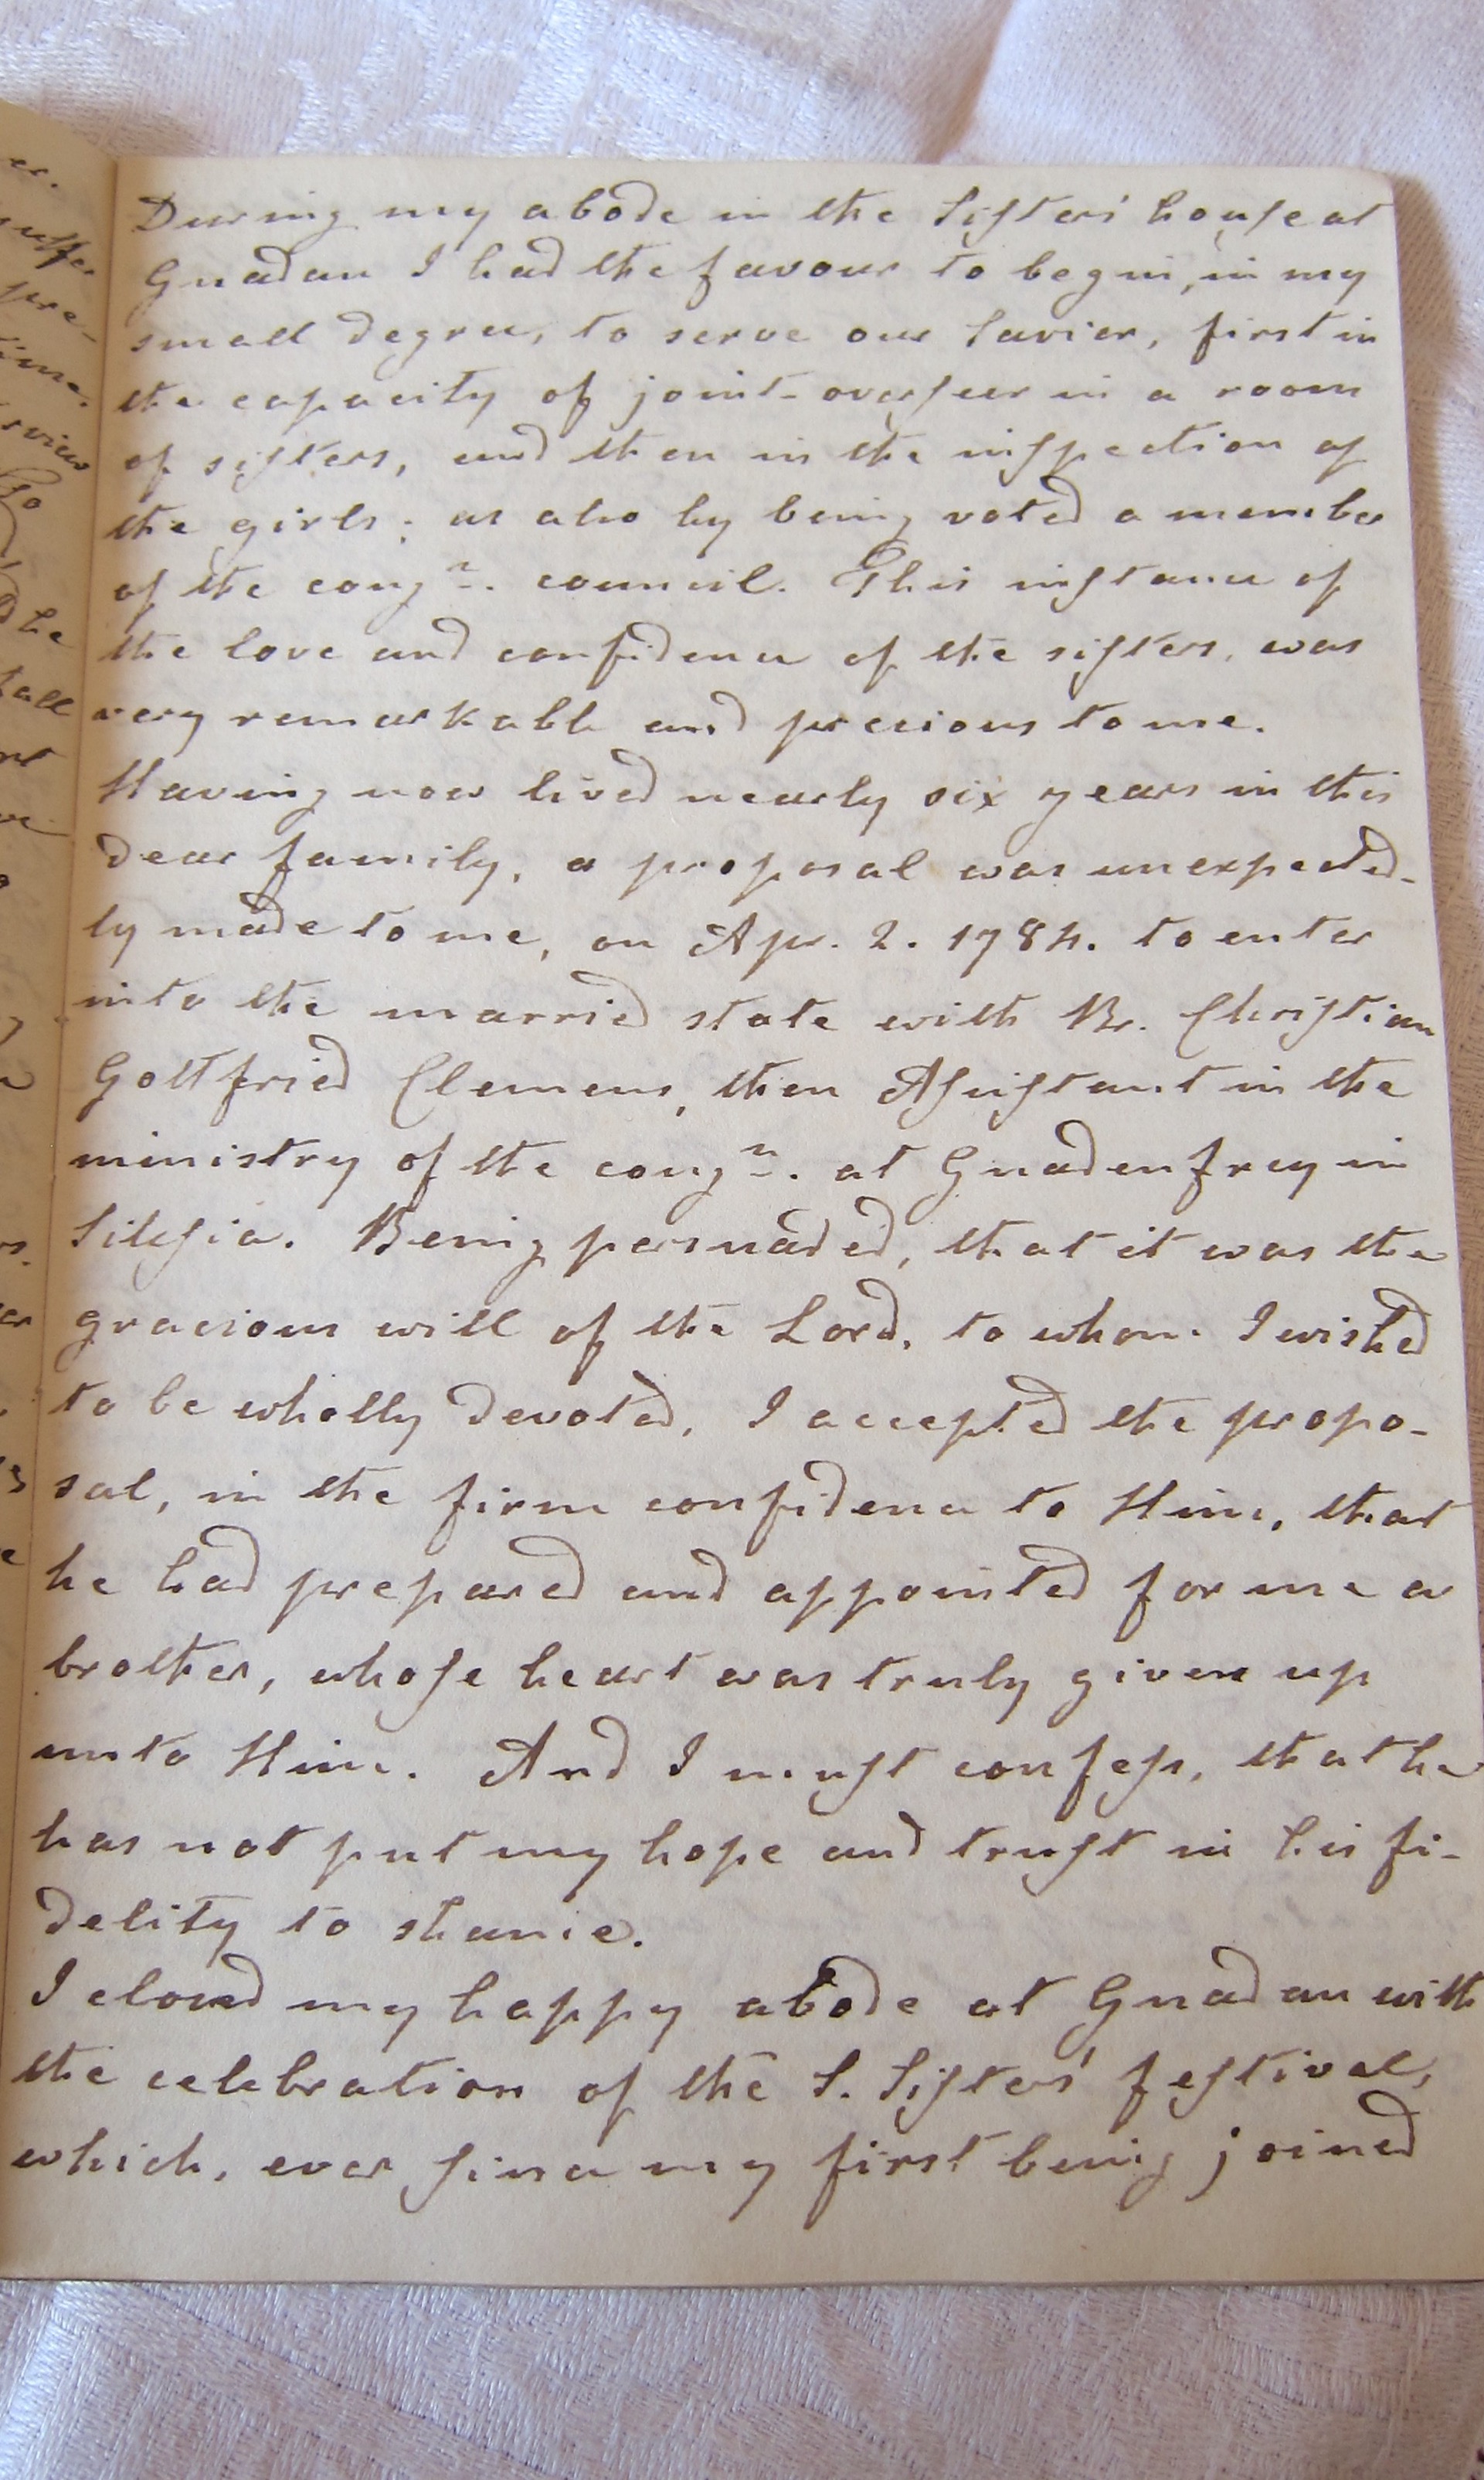 During my abode in the Sisters' house at
Gnadau I had the favour to begin, in my
small degree, to serve our Savior, first in
the capacity of joint-overseer in a room
of sisters, and then in the inspection of
the girls; as also by being voted a member
of the congn. council. This instance of
the love and confidence of the sisters, was
very remarkable and precious to me.
Having now lived nearly six years in this
dear family, a proposal was unexpected-
ly made to me, on Apr. 2. 1784. to enter
into the married state with Br. Christian
Gottfried Clemens, then Assistant in the
ministry of the congn. at Gnadenfrey in
Silesia. Being persuaded, that it was the
gracious will of the Lord, to whom I wished
to be wholly devoted, I accepted the propo-
sal, in the firm confidence to Him, that
he had prepared and appointed for me a
brother, whose heart was truly given up
unto Him. And I must confess, that he
has not put my hope and trust in his fi-
delity to shame.
I closed my happy abode at Gnadau with
the celebration of the S. Sisters' festival,
which, ever since my first being joined